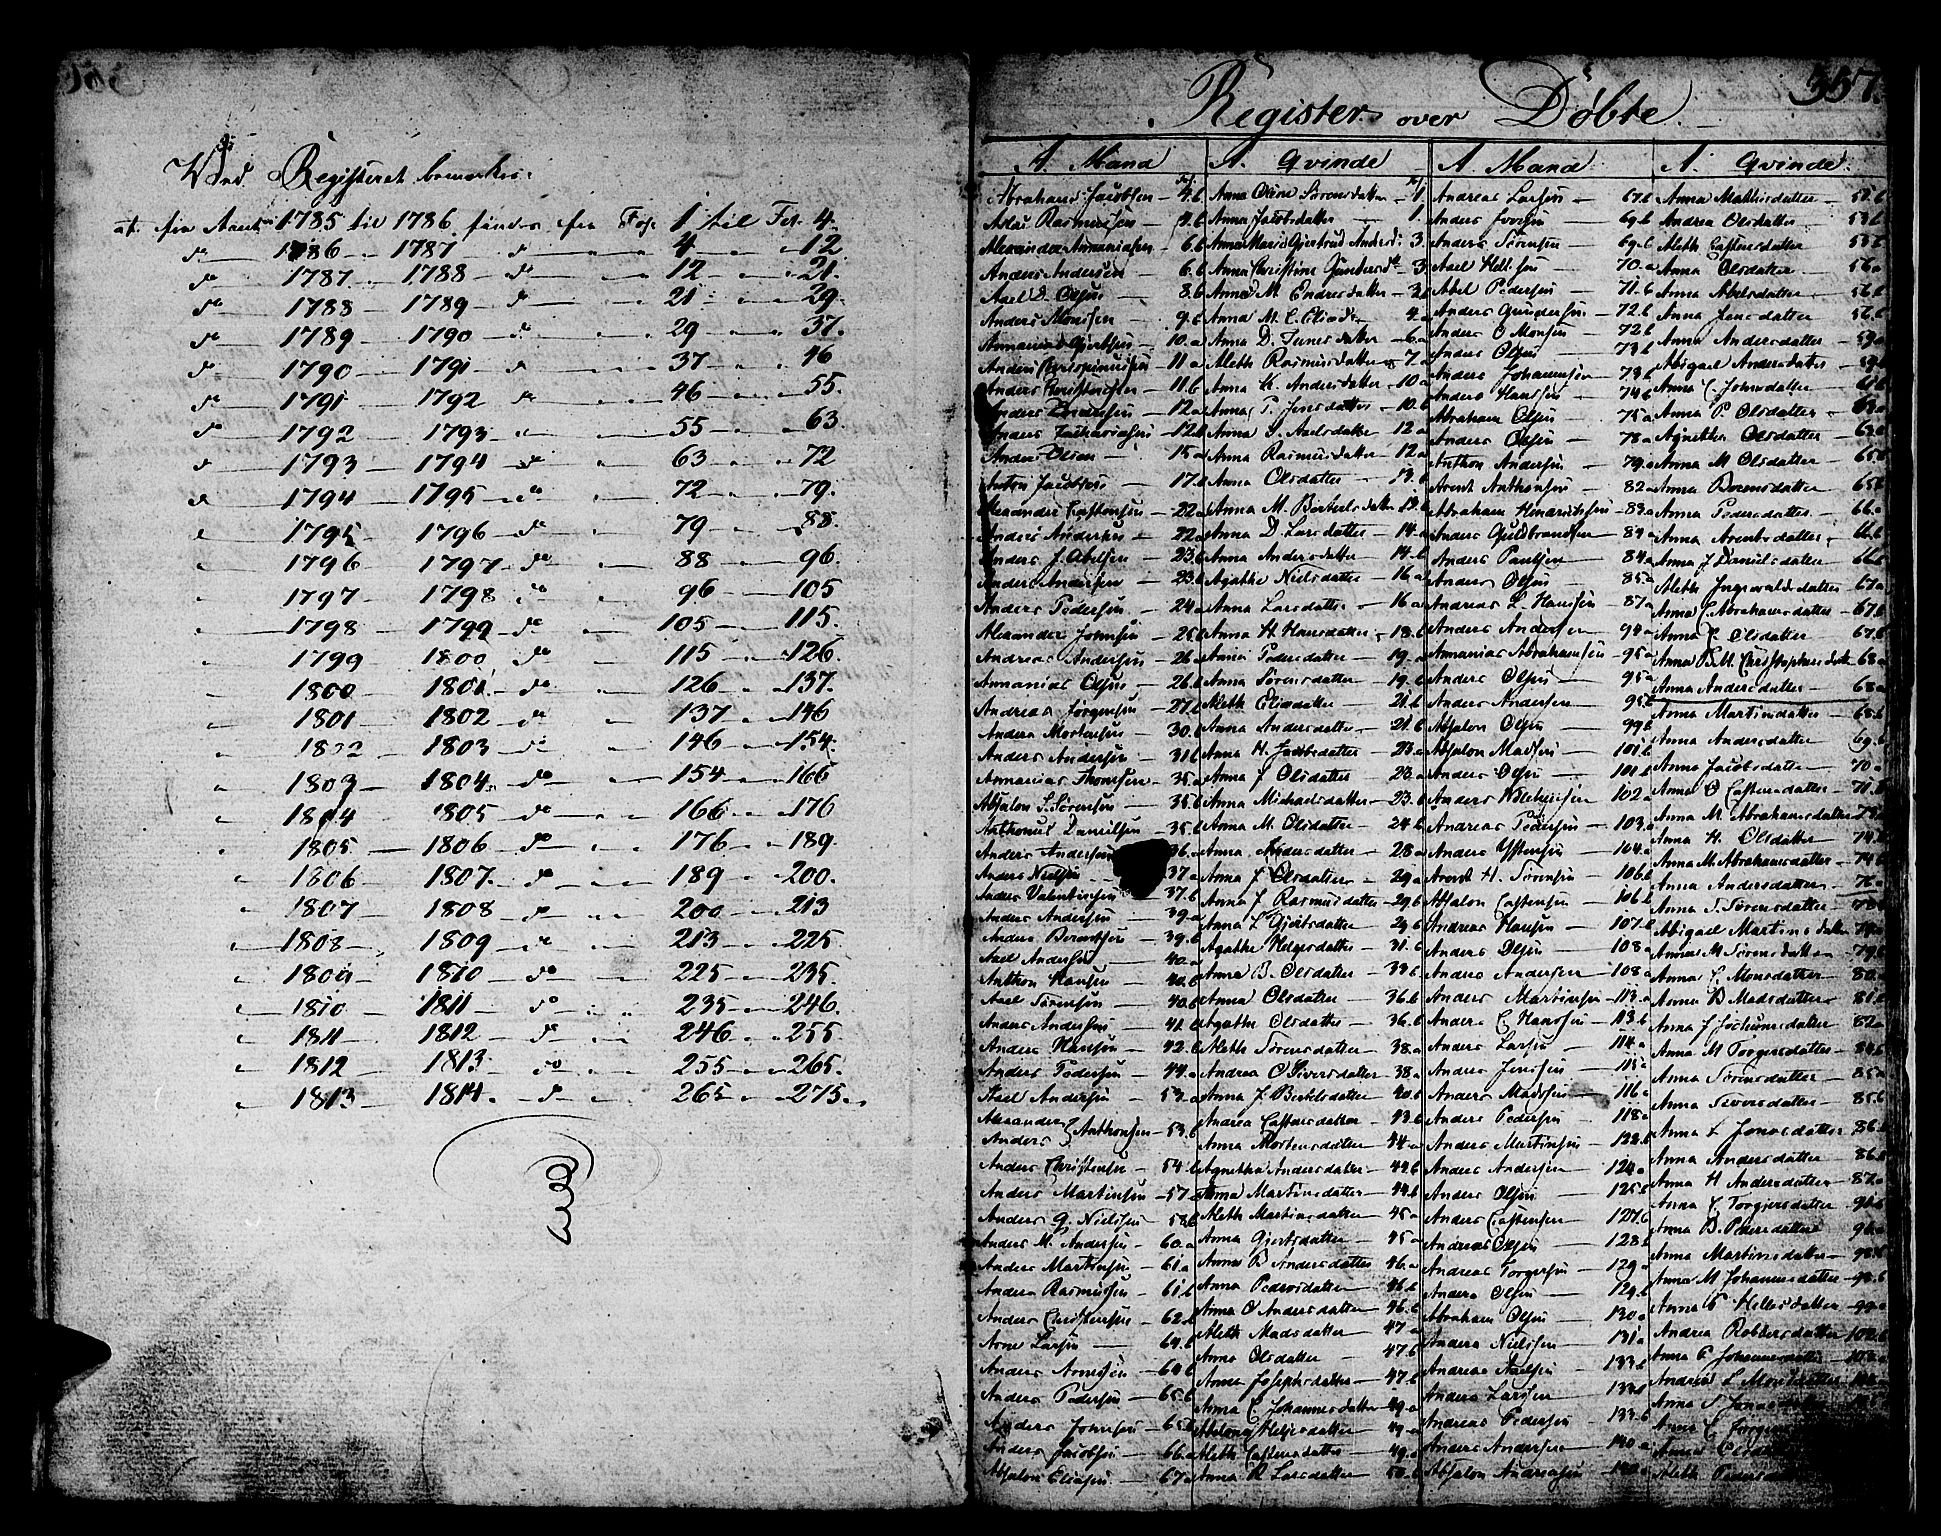 Ved Registeret bemærkes:
at fra Aaret 1785 til 1786 findes fra Fol. 1 til Fol. 4.
do 1786 - 1787 do 4 - 12
do 1787 - 1788 do 12 - 21.
do 1788 - 1789 do 21 - 29.
do 1789 - 1790 do 29 - 37.
do 1790 - 1791 do 37 - 46
do 1791 - 1792 do 46 - 55.
do 1792 - 1793 55 - 63.
1793 - 1794 do 63 - 72
1794 - 1795 do 72 - 79.
1795 - 1796 do 79 - 88.
1796 - 1797 do 88 - 96.
1797 - 1798 do 96 - 105
1798 - 1799 do 105 - 115.
1799 1800 do 115 - 126.
1800 - 1801 do 126 - 137.
1801 - 1802 do 137 - 146
1802 1803 do 146 - 154.
1803 - 1804 do 154 - 166
1804 1805 do 166 - 176
1805 - 1806 do 176 - 189.
1806 1807 do 189 - 200.
1807 - 1808 do 200 - 213
1808 - 1809 do 213 - 225
1809 - 1810 do 225 - 235.
1810 1811 do 235 - 246.
1811 - 1812 do 246 - 255
1812 - 1813 do 255 - 265.
1813 - 1814 do 265 - 275.
Register over Døbte.
357.
A. Mand
Abrahams Jacobsen - 4.b
Adau Rasmussen - 4.b
Alexander Annaniasen 6.b
Anders Andersen 6.b
Axel D. Olsen - 8.b
Anders Monsen - 9.b
Annanias Gjertsen - 10.a
Anders Christensen - 11.b
Anders Zachariasen - 12.b
Anders Olsen - 15.a
Anton Jacobsen 17.b
Alexander Castensen - 22.a
Anders Andersen 22.a
Anders J. Abelsen - 23.b
Anders Andersen - 23.b
Anders Pedersen - 24.a
Alexander Johnsen - 25.b
Andreas Andersen - 26.a
Annanias Olsen - 26.b
Andreas Jørgensen - 27.b
Anders Mortensen - 30.b
Anders Andersen - 31.b
Annanias Thomsen - 35.a
Absalon S. Sørensen - 35.b
Anthonius Danielsen - 35.b
Anders Andersen 36.
Anders Nielsen 37.a
Anders Valentinsen 37.b
Anders Andersen - 39.a
Anders Berentsen - 39.b
Axel Andersen - 40.a
Anthon Hansen - 40.b
Axel Sørensen - 40.b
Anders Andersen - 41.b
Anders Hansen - 42.b
Anders Pedersen - 44.a
Axel Andersen - 53.a
Alexander
Anders } Anthonsen - 53.b
Anders Christensen - 54.b
Anders Martinsen - 57.a
Anders G. Nielsen - 58.b
Anders M. Andersen - 60.a
Anders Martinsen - 61.a
Anders Rasmussen - 61.b
Anders Christensen - 62.b
Arne Larsen - 64.b
Anders Arnesen - 64.b
Anders Pedersen - 65.b
Anders Johnsen - 65.b
Anders Jacobsen - 66.a
Absalon Eliasen - 67.a
A. Qvinde
Anna Oline Sørensdatter - 1
Anna Jacobsdatter - 1.
Anna Maria Gjertrud Andersd: 3.
Anna M. Endresdatter - 3.b
Anna M. C. Eliasd: - 4.a
Aleth Rasmusdatter - 7.a
Anna K. Andersdatter - 10.a
Anna P. Jensdatter - 10.b
Anna S. Axelsdatter - 12.a
Anna Rasmusdatter - 12.a
Anna Olsdatter - 13.b
Anna M. Bertelsdatter 13.b
Anna D. Larsdatter - 14.a
Anna Andersdatter - 14.b
Agathe Nielsdatter - 16.a
Anna Larsdatter - 16.a
Anna H. Hansdatter - 18.b
Anna Pedersdatter - 19.a
Anna Sørensdatter - 19.b
Aleth Eliasdatter - 21.b
Anna Andersdatter - 21.b
Anna H. Jacobsdatter - 23.a
Anna J. Olsdatter 23.a
Anna Michaelsdatter - 23.b
Anna M. Olsdatter - 24.b
Anna Andersdatter - 28.a
Anna J. Olsdatter - 29.a
Anna J. Rasmusdatter - 29.b
Anna L. Gjertsdatter 29.b
Agathe Helgesdatter - 31.b
Anna B. Olsdatter - 33.b
Anna Olsdatter - 36.b
Agathe Olsdatter - 36.b
Aleth Sørensdatter - 38.a
Andrea O. Siversdatter - 38.a
Anna J. Bertelsdatter 40.b
Andrea Castensdatter - 43.b
Anna Mortensdatter - 44.a
Agnetha Andersdatter - 44.b
Anna Martinsdatter - 44.b
Aleth Martinsdatter - 45.a
Anna Gjertsdatter - 45.a
Anna B. Andersdatter 46.a
Anna Pedersdatter - 46.b
Anna O. Andersdatter - 46.b
Aleth Madsdatter - 47.a
Anna Olsdatter - 47.b
Anna Josephsdatter - 47.b
Anna C. Johannesdatter 49.a
Aleth Castensdatter - 49.a
Anna R. Larsdatter - 50.b
A. Mand
Andreas Larsen - 67.b
Anders Iversen - 69.b
Anders Sørensen - 69.b
Axel Helle.sen - 70.a
Abel Pedersen - 71.b
Anders Gundersen - 72.b
Anders O. Monsen - 72.b
Anders Olsen - 73.b
Anders Johannessen - 73.b
Anders Hansen - 74.b
Abraham Olsen - 75.a
Anders Olsen - 78.a
Anthon Andersen - 79.a
Arent Anthonsen - 82.a
Abraham Henrichsen - 83.a
Anders Guldbrandsen - 84.a
Anders Paulsen - 84.a
Anders Olsen - 85.a
Andreas L. Hansen 87.a
Anders Andersen - 94.a
Annanias Abrahamsen - 95.a
Anders Olsen - 95.a
Anders Andersen - 95.b
Absalon Olsen - 99.b
Absalon Madsen - 101.b
Anders Olsen - 101.b
Anders Willumsen 102.a
Andreas Pedersen - 103.a
Anders Iffversen - 104.a
Arent H. Sørensen - 106.b
Absalon Castensen - 106.b
Andreas Hansen - 107.b
Anders Olsen - 108.a
Anders Andersen - 108.a
Anders Martinsen - 113.a
Anders C. Hansen - 113.b
Anders Larsen - 114.a
Anders Jensen - 115.a
Anders Madsen - 116.a
Anders Pedersen - 118.a
Anders Martinsen - 122.b
Anders Andersen - 124.a
Anders Olsen - 125.b
Anders Castensen - 127.b
Andreas Olsen - 128.b
Andreas Torgersen - 129.a
Anders Olsen - 129.b
Abraham Olsen - 130.a
Anders Nielsen - 131.a
Andreas Axelsen - 133.b
Anders Larsen - 133.b
Andreas Pedersen - 133.b
Anders Andersen - 140.a
Absalon Andreasen - 140.a
A. Qvinde
Anna Mathiesdatter - 55.b
Andrea Olsdatter - 53.b
Aleth Castensdatter 55.b
Anna Olsdatter - 56.a
Anna Abelsdatter - 56.b
Anna Jensdatter - 56.b
Anna Andersdatter - 59.a
Abigael Andersdatter 59.b
Anna C. Johnsdatter - 61.b
Anna P. Olsdatter - 63.a
Agnethe Olsdatter - 63.a
Anna M. Olsdatter - 65.b
Anna Berentsdatter 65.b
Anna Pedersdatter - 66.a
Anna Arentsdatter - 66.b
Anna J. Danielsdatter - 66.b
Aleth Ingewaldsdatter 67.a
Anna C. Abrahamsdatter - 67.b
Anna C. Olsdatter - 67.b
Anna B.M. Christophersdatter 68.a
Anna Andersdatter - 68.a
Anna Martinsdatter - 68.b
Anna Andersdatter 69.b
Anna Jacobsdatter - 70.a
Anna O. Castensdatter - 71.b
Anna M. Abrahamsdatter
Anna H. Olsdatter 74.b
Anna M. Abrahamsdatter - 74.b
Anna Andersdatter - 76.a
Anna S. Sørensdatter
Abigael Martinsdatter
Anna M. Sørensdatter - 79.b
Anna C. Monsdatter - 80.a
Anna D. Madsdatter - 81.b
Anna J. Jochumsdatter - 82.a
Anna M. Torgersdatter - 84.b
Anna Sørensdatter - 85.a
Anna Siversdatter - 85.b
Anna L. Jonasdatter 86.b
Anna Andersdatter - 86.b
Anna H. Andersdatter - 87.a
Anna C. Torgjersdatter - 94.b
Anna D. Pedersdatter 96.a
Anna Martinsdatter - 98.b
Anna M. Johannesdatter - 98.b
Anna P. Hellesdatter - 99.a
Andrea Robbersdatter - 102.b
Anna P. Johannesdatter - 103.a
Andrea L. Monsdatter
Anna S. Jonasdatter
Anna C. Jørgens
Anna
Aleth Pedersdatter